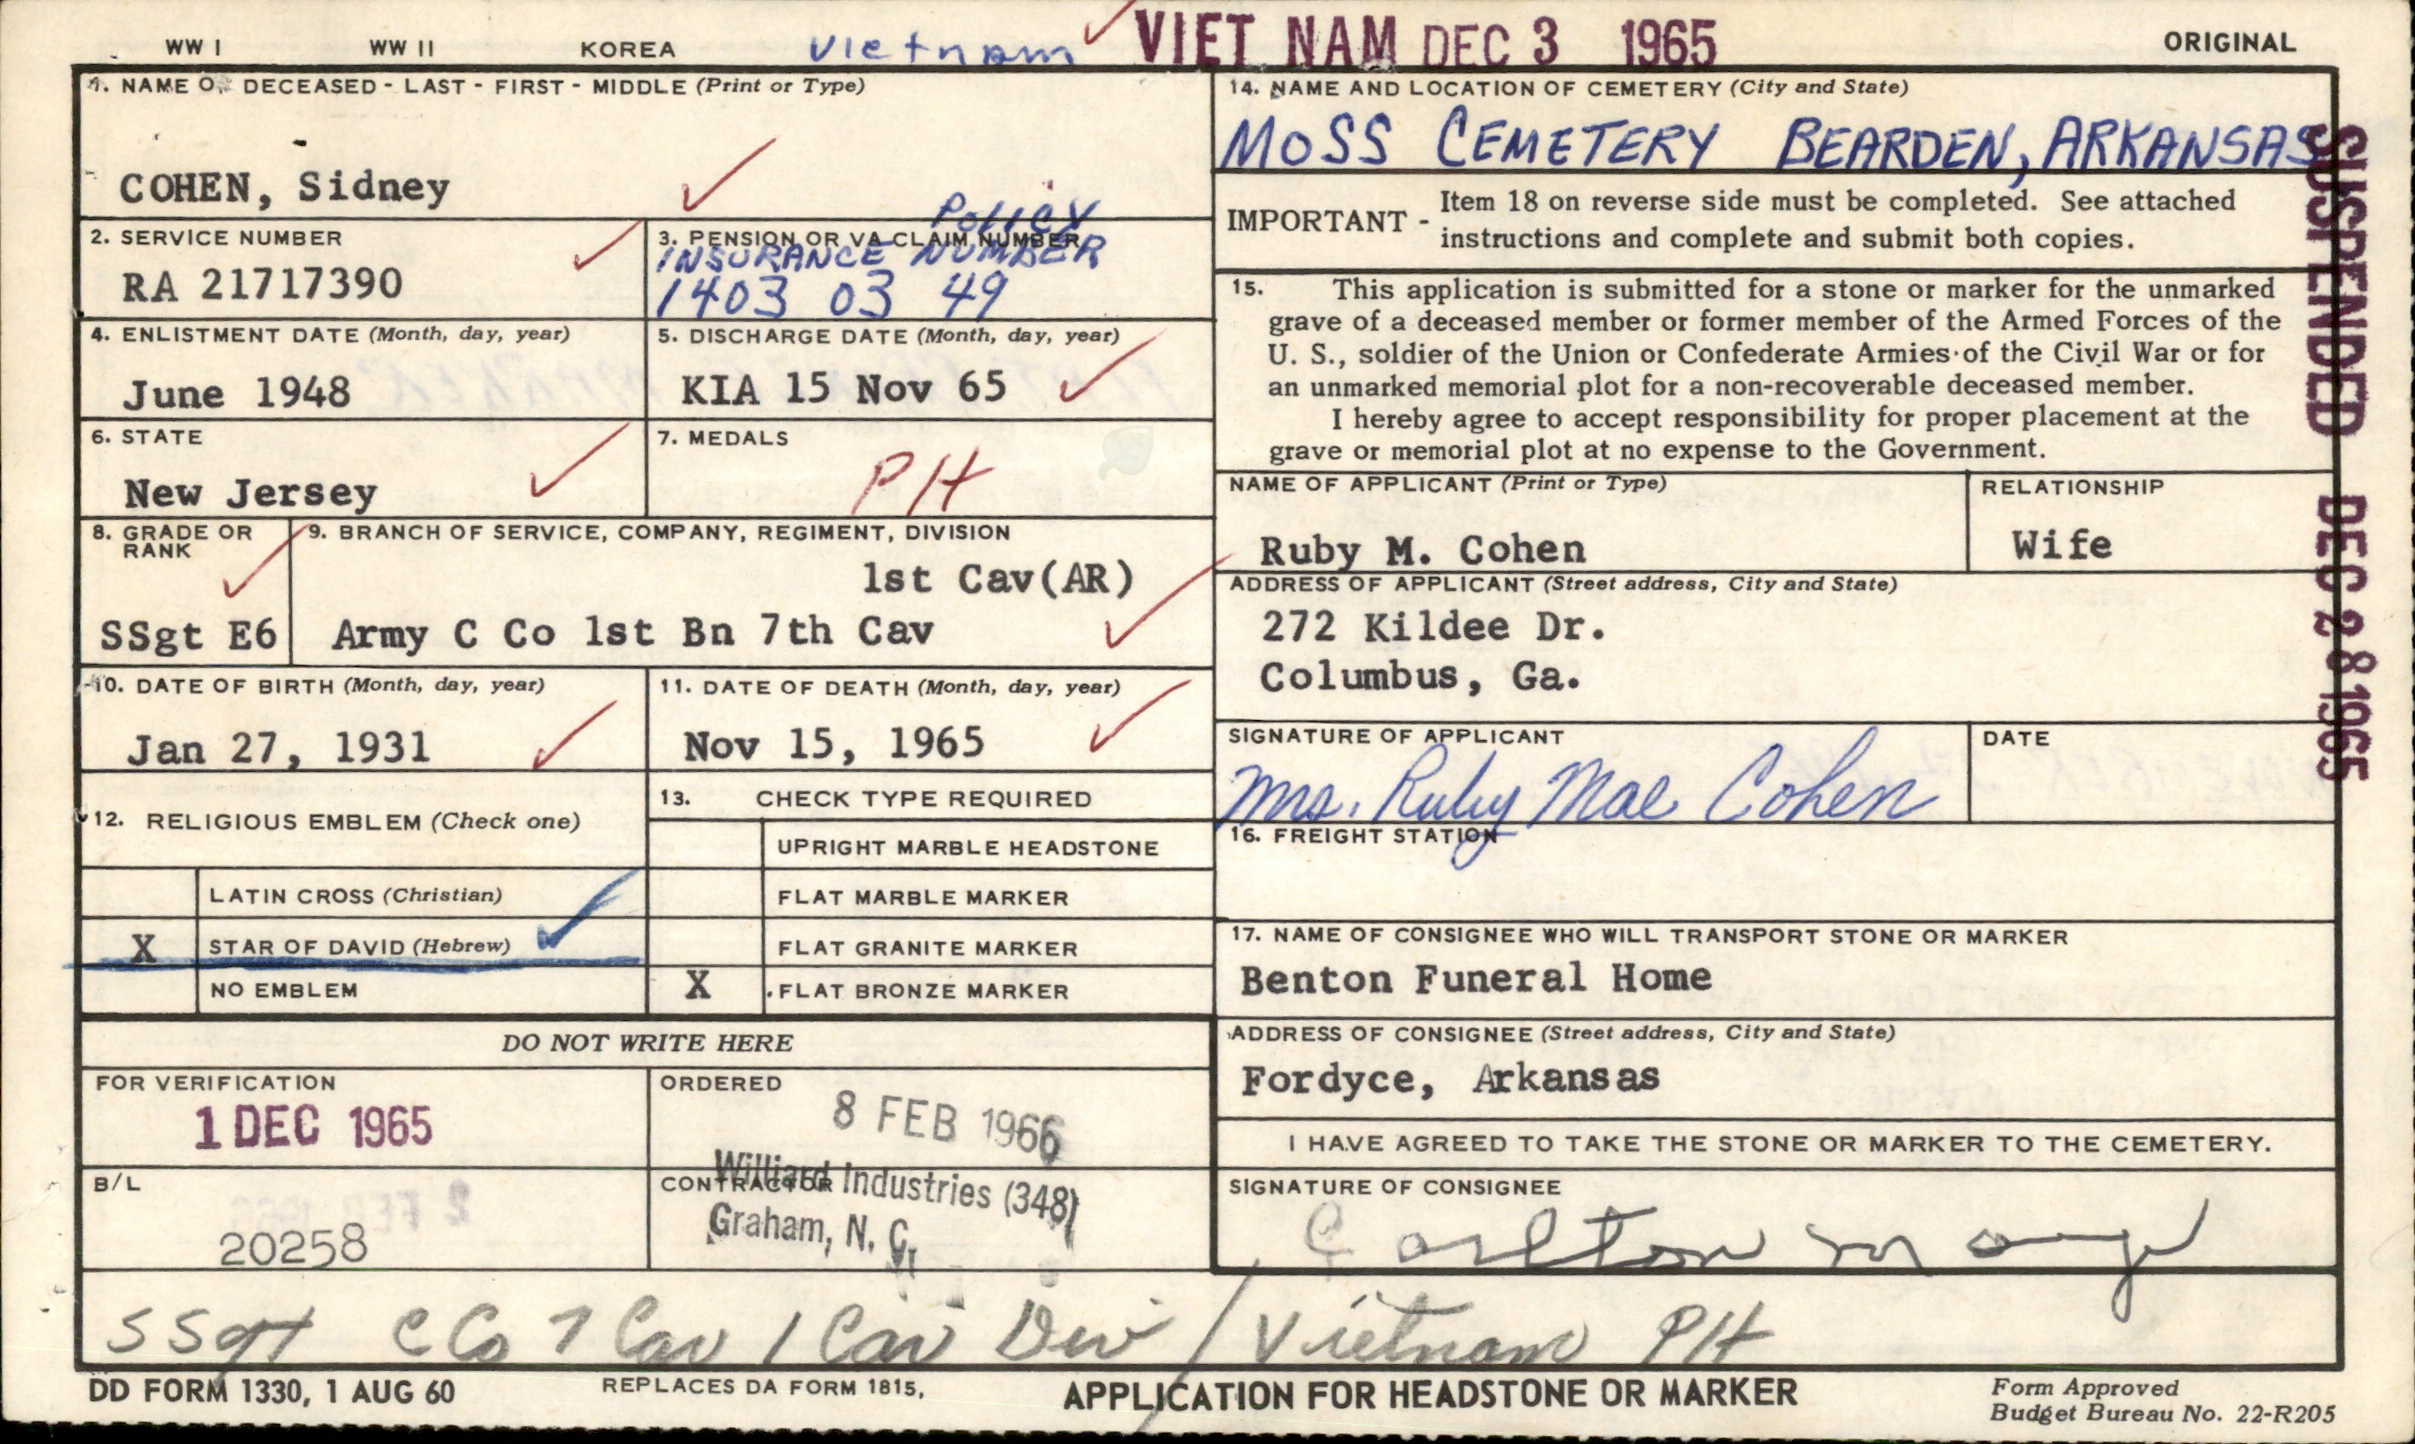 WW I WW II KOREA Vietnam VIET NAM DEC 3 1965 ORIGINAL
1. NAME OF DECEASED - LAST - FIRST - MIDDLE (Print or Type)
COHEN, Sidney
2. SERVICE NUMBER
RA 21717390
3. PENSION OR VA CLAIM NUMBER
POLICY
INSURANCE NUMBER
1403 03 49
4. ENLISTMENT DATE (Month, day, year)
June 1948
5. DISCHARGE DATE (Month, day, year)
KIA 15 Nov 65
6. STATE
New Jersey
7. MEDALS
PH
8. GRADE OR
RANK
SSgt E6
9. BRANCH OF SERVICE, COMPANY, REGIMENT, DIVISION
1st Cav(AR)
Army C Co 1st Bn 7th Cav
10. DATE OF BIRTH (Month, day, year)
Jan 27, 1931
11. DATE OF DEATH (Month, day, year)
Nov 15, 1965
12. RELIGIOUS EMBLEM (Check one)
LATIN CROSS (Christian)
X STAR OF DAVID (Hebrew)
NO EMBLEM
13. CHECK TYPE REQUIRED
UPRIGHT MARBLE HEADSTONE
FLAT MARBLE MARKER
FLAT GRANITE MARKER
X FLAT BRONZE MARKER
DO NOT WRITE HERE
FOR VERIFICATION
1 DEC 1965
ORDERED
8 FEB 1966
B/L
20258
CONTRACTOR
Williard Industries (348)
Graham, N. C.
14. NAME AND LOCATION OF CEMETERY (City and State)
MOSS CEMETERY BEARDEN, ARKANSAS
IMPORTANT - Item 18 on reverse side must be completed. See attached
instructions and complete and submit both copies.
15. This application is submitted for a stone or marker for the unmarked
grave of a deceased member or former member of the Armed Forces of the
U. S., soldier of the Union or Confederate Armies of the Civil War or for
an unmarked memorial plot for a non-recoverable deceased member.
I hereby agree to accept responsibility for proper placement at the
grave or memorial plot at no expense to the Government.
NAME OF APPLICANT (Print or Type)
Ruby M. Cohen
RELATIONSHIP
Wife
ADDRESS OF APPLICANT (Street address, City and State)
272 Kildee Dr.
Columbus, Ga.
SIGNATURE OF APPLICANT
Mrs. Ruby Mae Cohen
DATE
16. FREIGHT STATION
17. NAME OF CONSIGNEE WHO WILL TRANSPORT STONE OR MARKER
Benton Funeral Home
ADDRESS OF CONSIGNEE (Street address, City and State)
Fordyce, Arkansas
I HAVE AGREED TO TAKE THE STONE OR MARKER TO THE CEMETERY.
SIGNATURE OF CONSIGNEE
Carlton
SUSPENDED DEC 28 1965
SSgt C Co 7 Cav 1 Cav Div / Vietnam PH
DD FORM 1330, 1 AUG 60 REPLACES DA FORM 1815, APPLICATION FOR HEADSTONE OR MARKER
Form Approved
Budget Bureau No. 22-R205